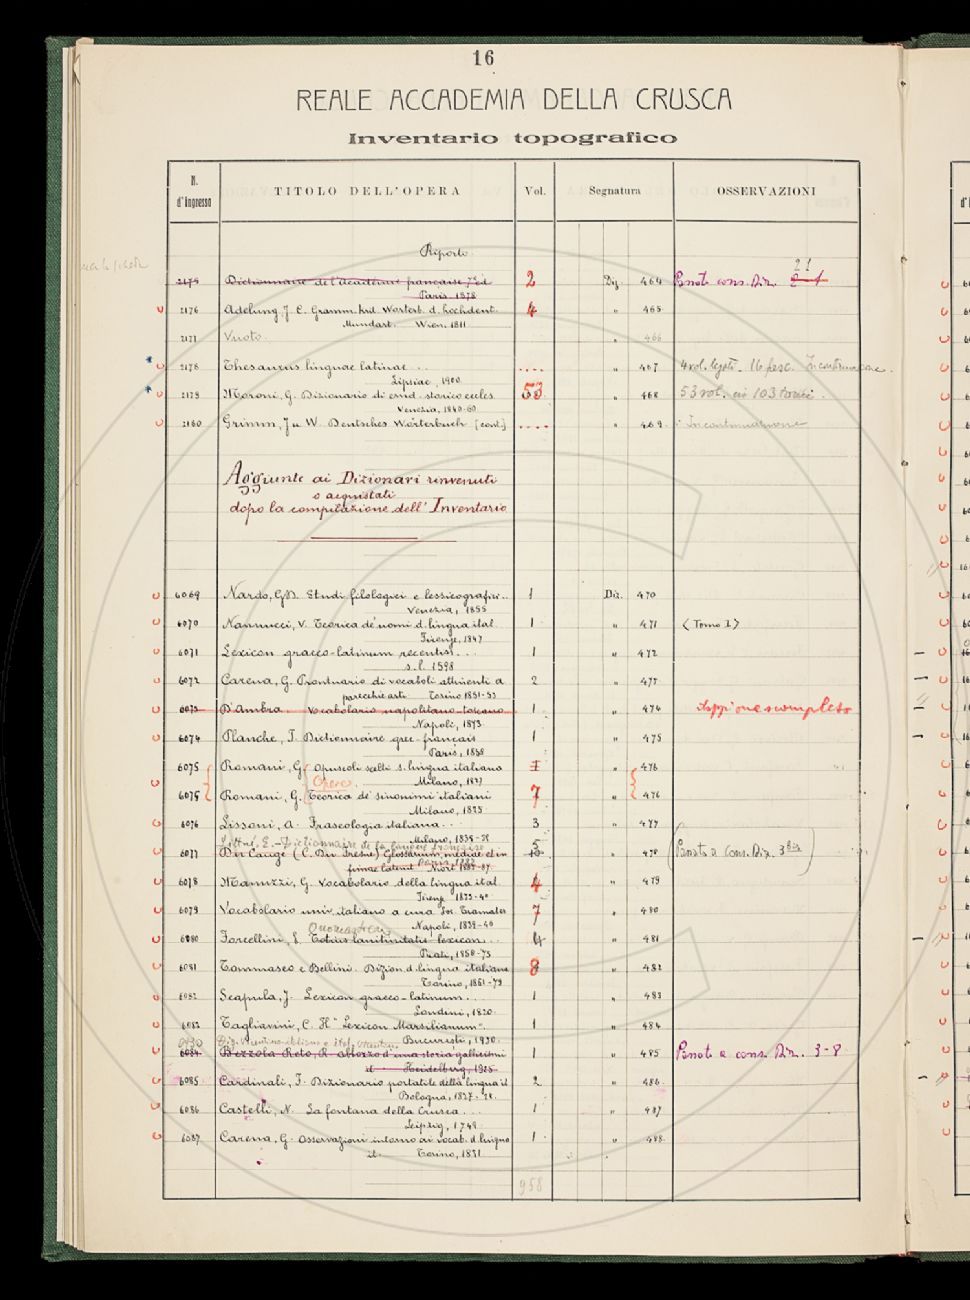 16
REALE ACCADEMIA DELLA CRUSCA
Inventario topografico
N. d'ingresso TITOLO DELL'OPERA Vol. Segnatura OSSERVAZIONI
Riporto
2175 Dictionnaire de l'Académie française 7e éd 2 Diz. 464 Passato cons. Diz. 2-1 21
Paris 1878
2176 Adelung, J. C. Gramm. krit. Wörterb. d. hochdeut. 4 " 465
Mundart. Wien, 1811
2177 Vuoto. " 466
2178 Thesaurus linguae latinae ... .... " 467 4 vol. legati - 16 fasc. In continuazione.
Lipsiae, 1900
2179 Moroni, G. Dizionario di erud. storico eccles. 53 " 468 53 vol. in 103 tomi.
Venezia, 1840-60
2180 Grimm, J u W. Deutsches Wörterbuch [cont.] .... " 469 In continuazione
Aggiunte ai Dizionari rinvenuti
o acquistati
dopo la compilazione dell'Inventario
6069 Nardo, G.D. Studi filologici e lessicografici .. 1 Diz. 470
Venezia, 1855
6070 Nannucci, V. Teorica de' nomi d. lingua ital. 1 " 471 (Tomo I)
Firenze, 1847
6071 Lexicon graeco-latinum recentiss. ... 1 " 472
s.l. 1598
6072 Carena, G. Prontuario di vocaboli attinenti a 2 " 473
parecchie arti Torino 1851-53
6073 D'Ambra. Vocabolario napolitano-toscano 1 " 474 doppione scompleto
Napoli, 1873
6074 Planche, J. Dictionnaire grec-français 1 " 475
Paris, 1838
6075 Romani, G. Opuscoli scelti s. lingua italiana 1 " 476
Opere Milano, 1827
6075 Romani, G. Teorica de' sinonimi italiani 7 " 476
Milano, 1825
6076 Lissoni, A. Fraseologia italiana ... 3 " 477
Milano, 1835-38
Littré, E. - Dictionnaire de la langue française 5
6077 Du Cange (C. Du Fresne) Glossarium mediae et in 10 " 478 Passato a Cons. Diz. 3 bis
Paris, 1883
fimae latinit. Niort 1883-87.
6078 Manuzzi, G. Vocabolario della lingua ital. 4 " 479
Firenze 1833-40
6079 Vocabolario univ. italiano a cura Soc. Tramater 7 " 480
Napoli, 1829-40
Onomasticon
6080 Forcellini, E. Totius latinitatis lexicon ... 4 " 481
Prati, 1858-75
6081 Tommaseo e Bellini. Dizion. d. lingua italiana 8 " 482
Torino, 1861-79
6082 Scapula, J. Lexicon graeco-latinum ... 1 " 483
Londini, 1820
6083 Tagliavini, C. Il "Lexicon Marsilianum". 1 " 484
Bucureşti, 1930.
6084 Bezzola Reto, R. abbozzo d'una storia gallicismi 1 " 485 Passato a cons. Diz. 3-8
it. Heidelberg, 1925
6085 Cardinali, F. Dizionario portatile della lingua it 2 " 486
Bologna, 1827-28.
6086 Castelli, N. La fontana della Crusca ... 1 " 487
Leipzig, 1749
6087 Carena, G. Osservazioni intorno ai vocab. d. lingua 1 " 488
it. Torino, 1831
958